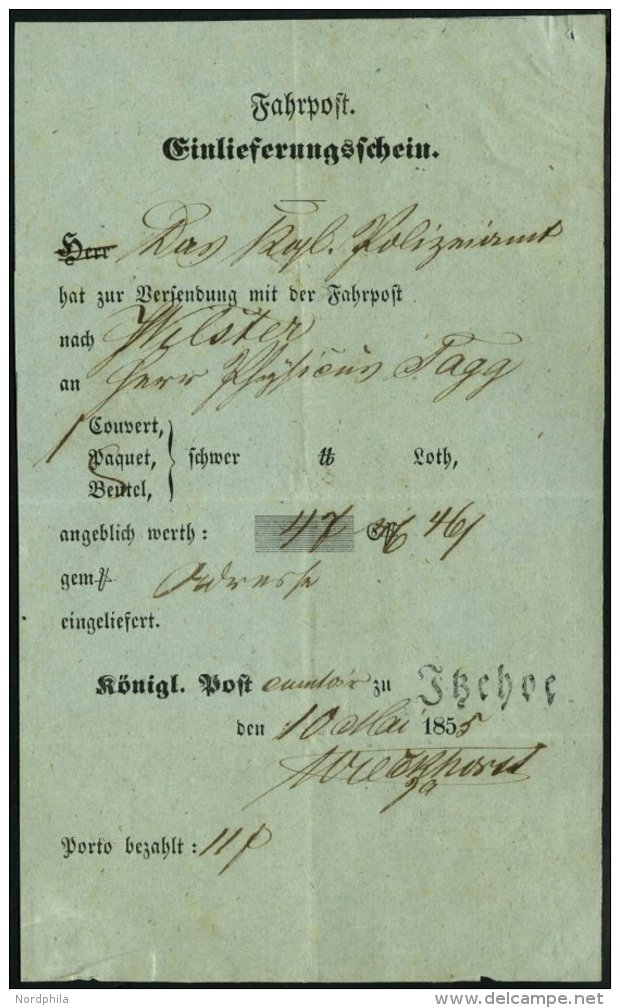 Fahrpost.
Einlieferungsschein.
Herr Das Kgl. Polizeiamt
hat zur Versendung mit der Fahrpost
nach Wilster
an Herr Physicus Tagg
Couvert,
1 Paquet, schwer ℔ Loth,
Beutel,
angeblich werth: 47 46
gem. Adresse
eingeliefert.
Königl. Post comtoir zu Itzehoe
den 10 Mai 1855
Porto bezahlt: 11
Nordphila
www.delcampe.net